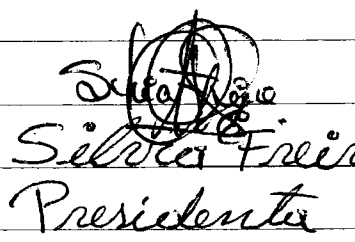 Silvia Freir
Presidenta